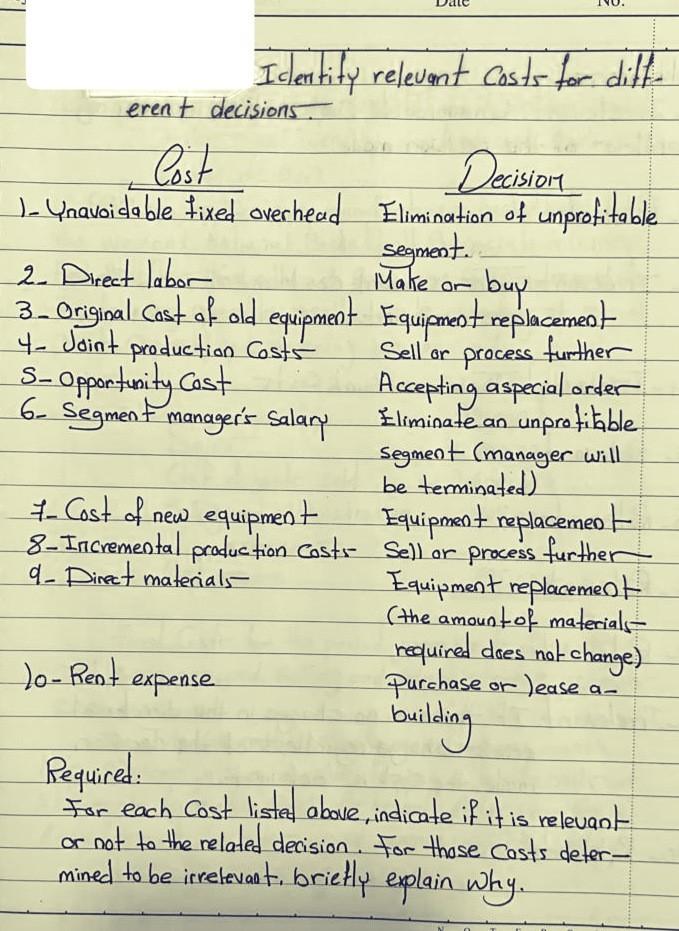 Date No.
Identify relevant Costs for diff-
erent decisions.
Cost Decision
1- Unavoidable fixed overhead Elimination of unprofitable
segment.
2- Direct labor Make or buy
3- Original Cost of old equipment Equipment replacement
4- Joint production Costs Sell or process further
5- Opportunity Cost Accepting a special order
6- Segment manager's Salary Eliminate an unprofitable
segment (manager will
be terminated)
7- Cost of new equipment Equipment replacement
8- Incremental production Costs Sell or process further
9- Direct materials Equipment replacement
(the amount of materials
required does not change)
10- Rent expense Purchase or lease a
building
Required:
For each Cost listed above, indicate if it is relevant
or not to the related decision. For those Costs deter-
mined to be irrelevant, briefly explain why.